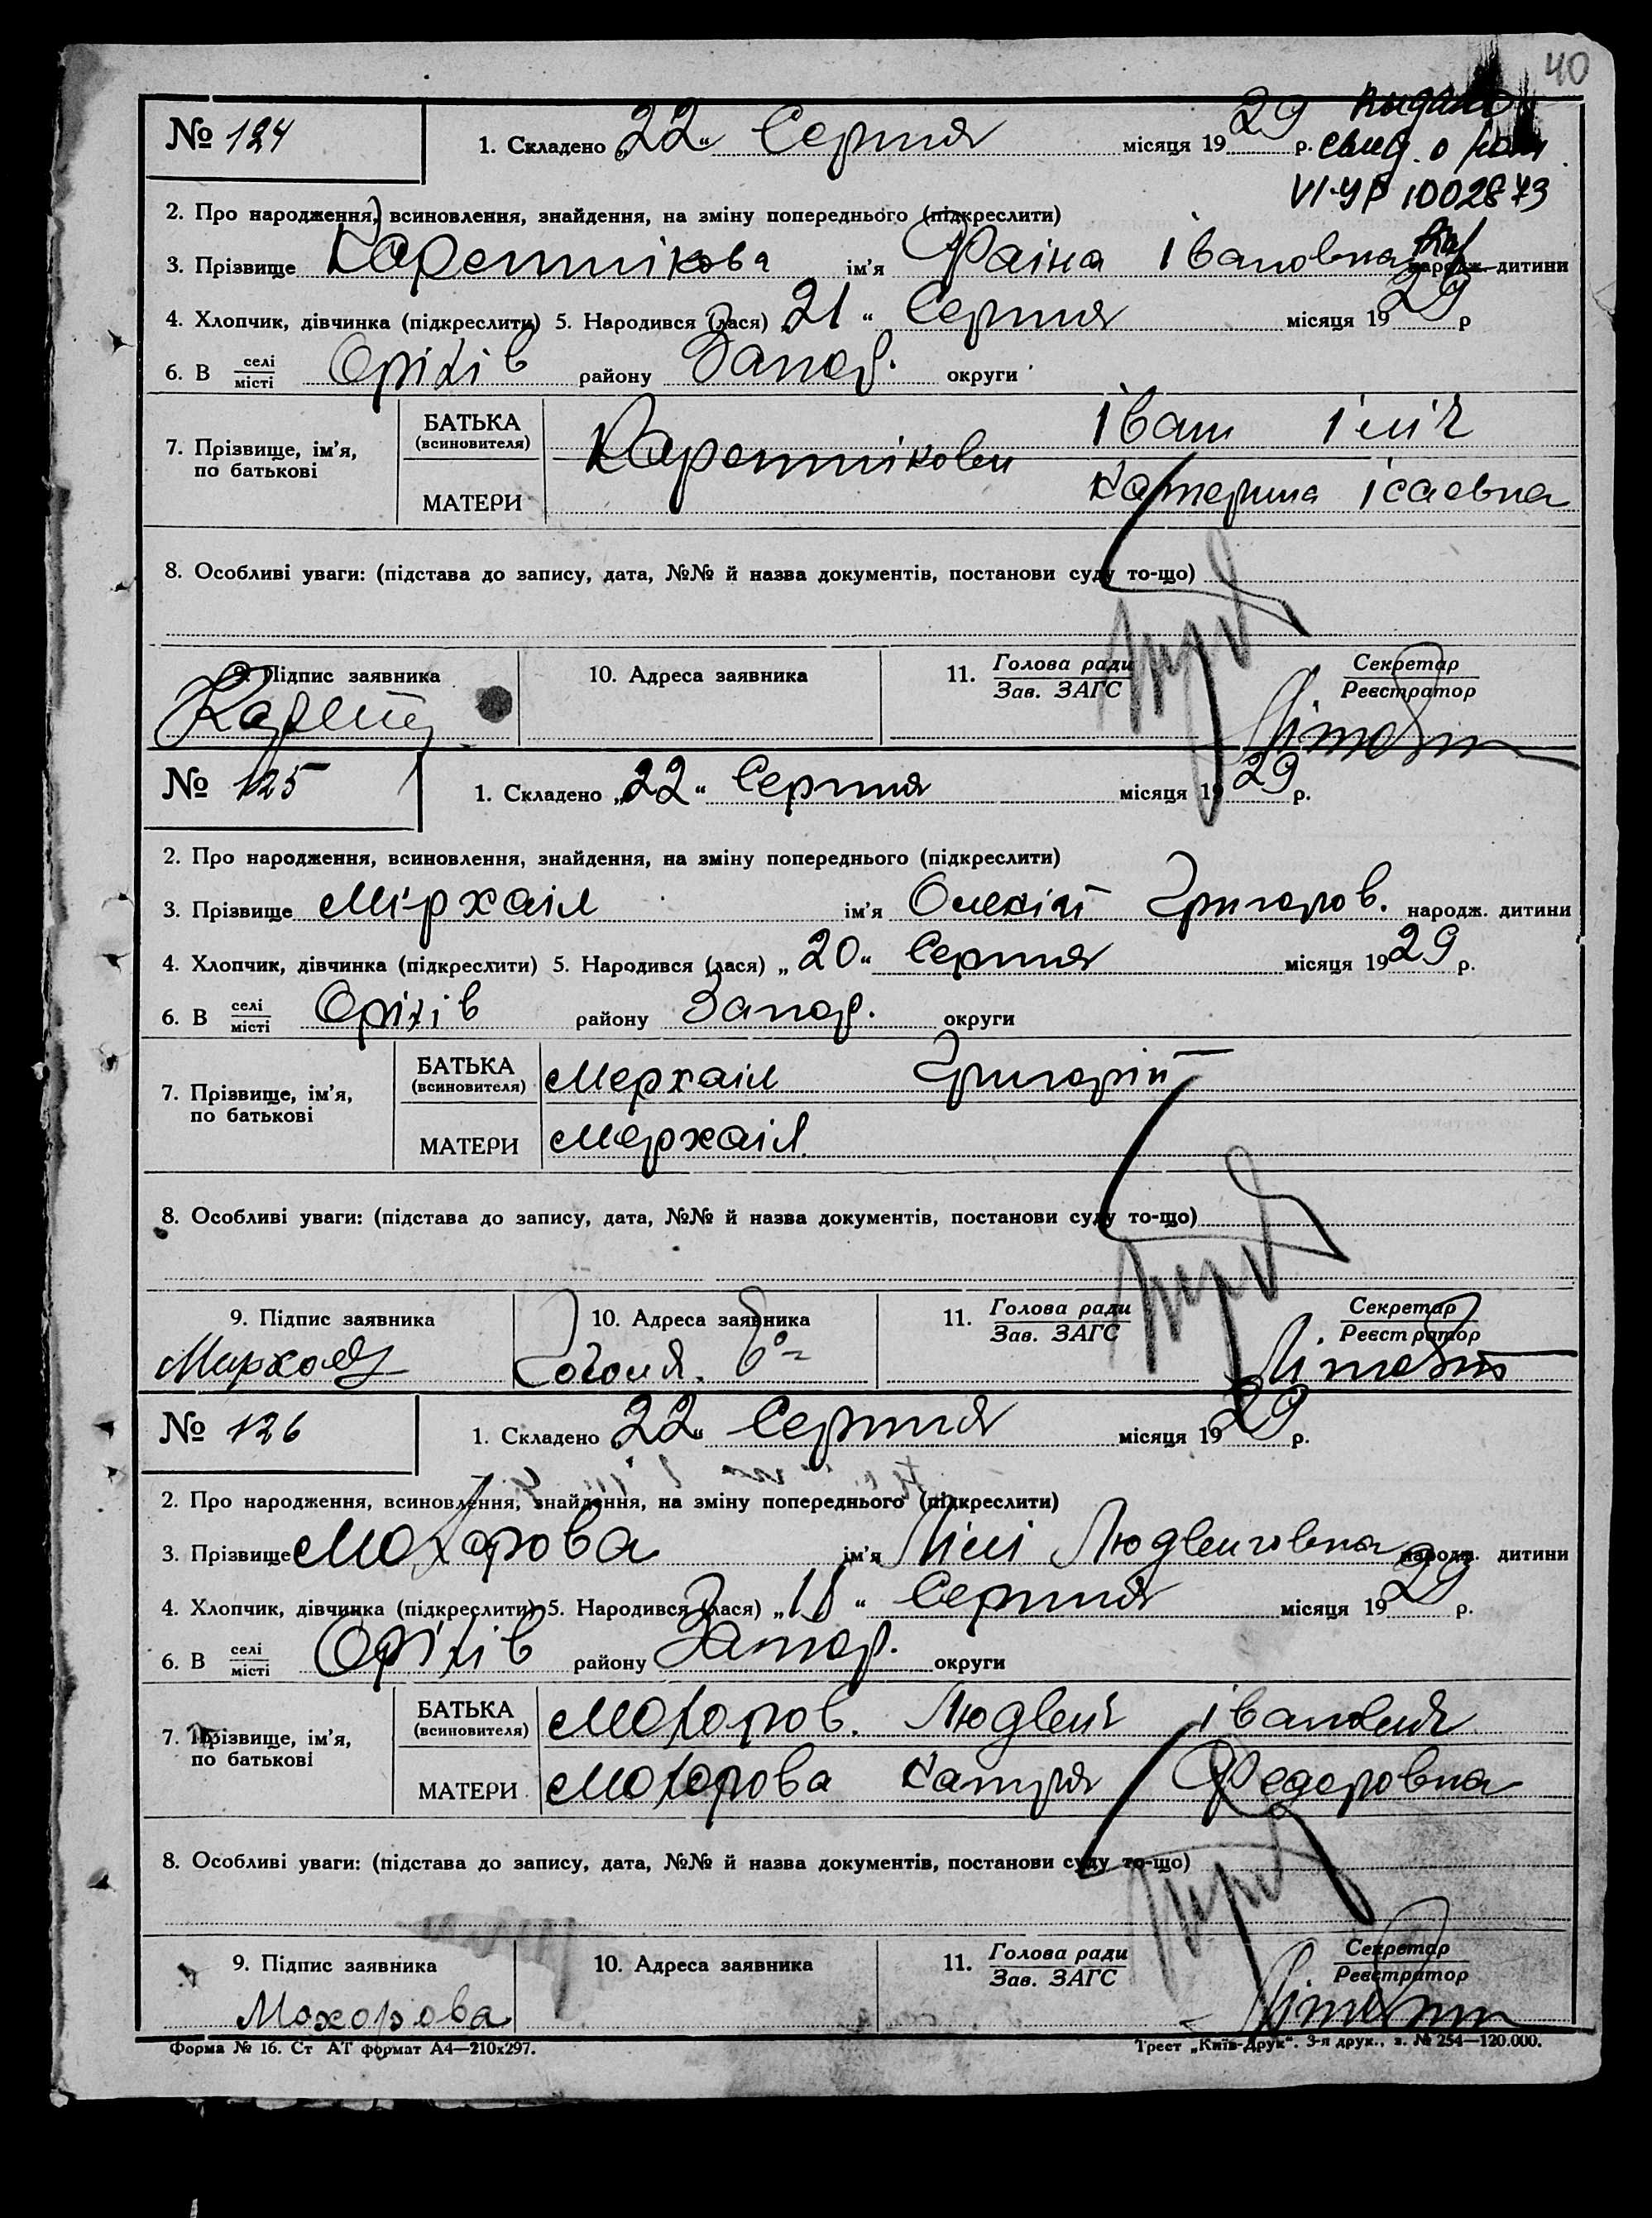 40
№ 124
1. Складено „22“ Серпня місяця 1929 р.
видано
свид. о рож.
VI-УР 1002873
2. Про народження, всиновлення, знайдення, на зміну попереднього (підкреслити)
3. Прізвище Каретнікова ім'я Фаіна Івановна народж. дитини
4. Хлопчик, дівчинка (підкреслити) 5. Народився (лася) 21 “ Серпня місяця 1929 р
6. В селі місті Оріхів району Запор. округи
7. Прізвище, ім'я, по батькові
БАТЬКА (всиновителя) Іван Іліч
Каретнікови
МАТЕРИ Катерина Ісаєвна
8. Особливі уваги: (підстава до запису, дата, №№ й назва документів, постанови суду то-що)
9. Підпис заявника
10. Адреса заявника
11. Голова ради Зав. ЗАГС
Секретар Реєстратор
№ 125
1. Складено „22“ Серпня місяця 1929 р.
2. Про народження, всиновлення, знайдення, на зміну попереднього (підкреслити)
3. Прізвище Мірхаіл ім'я Олексій Григоров. народж. дитини
4. Хлопчик, дівчинка (підкреслити) 5. Народився (лася) „20“ Серпня місяця 1929 р.
6. В селі місті Оріхів району Запор. округи
7. Прізвище, ім'я, по батькові
БАТЬКА (всиновителя) Мерхаіл Григорій
МАТЕРИ Мерхаіл
8. Особливі уваги: (підстава до запису, дата, №№ й назва документів, постанови суду то-що)
9. Підпис заявника
10. Адреса заявника
Гоголя.
11. Голова ради Зав. ЗАГС
Секретар Реєстратор
№ 126
1. Складено „22“ Серпня місяця 1929 р.
2. Про народження, всиновлення, знайдення, на зміну попереднього (підкреслити)
3. Прізвище Мохорова ім'я Лілі Людвиговна народж. дитини
4. Хлопчик, дівчинка (підкреслити) 5. Народився (лася) „18“ Серпня місяця 1929 р.
6. В селі місті Оріхів району Запор. округи
7. Прізвище, ім'я, по батькові
БАТЬКА (всиновителя) Мохоров. Людвиг Іванович
МАТЕРИ Мохорова Катря Федоровна
8. Особливі уваги: (підстава до запису, дата, №№ й назва документів, постанови суду то-що)
9. Підпис заявника
Мохорова
10. Адреса заявника
11. Голова ради Зав. ЗАГС
Секретар Реєстратор
Форма № 16. Ст АТ формат А4—210х297.
Трест „Київ-Друк“. 3-я друк., з. № 254—120.000.